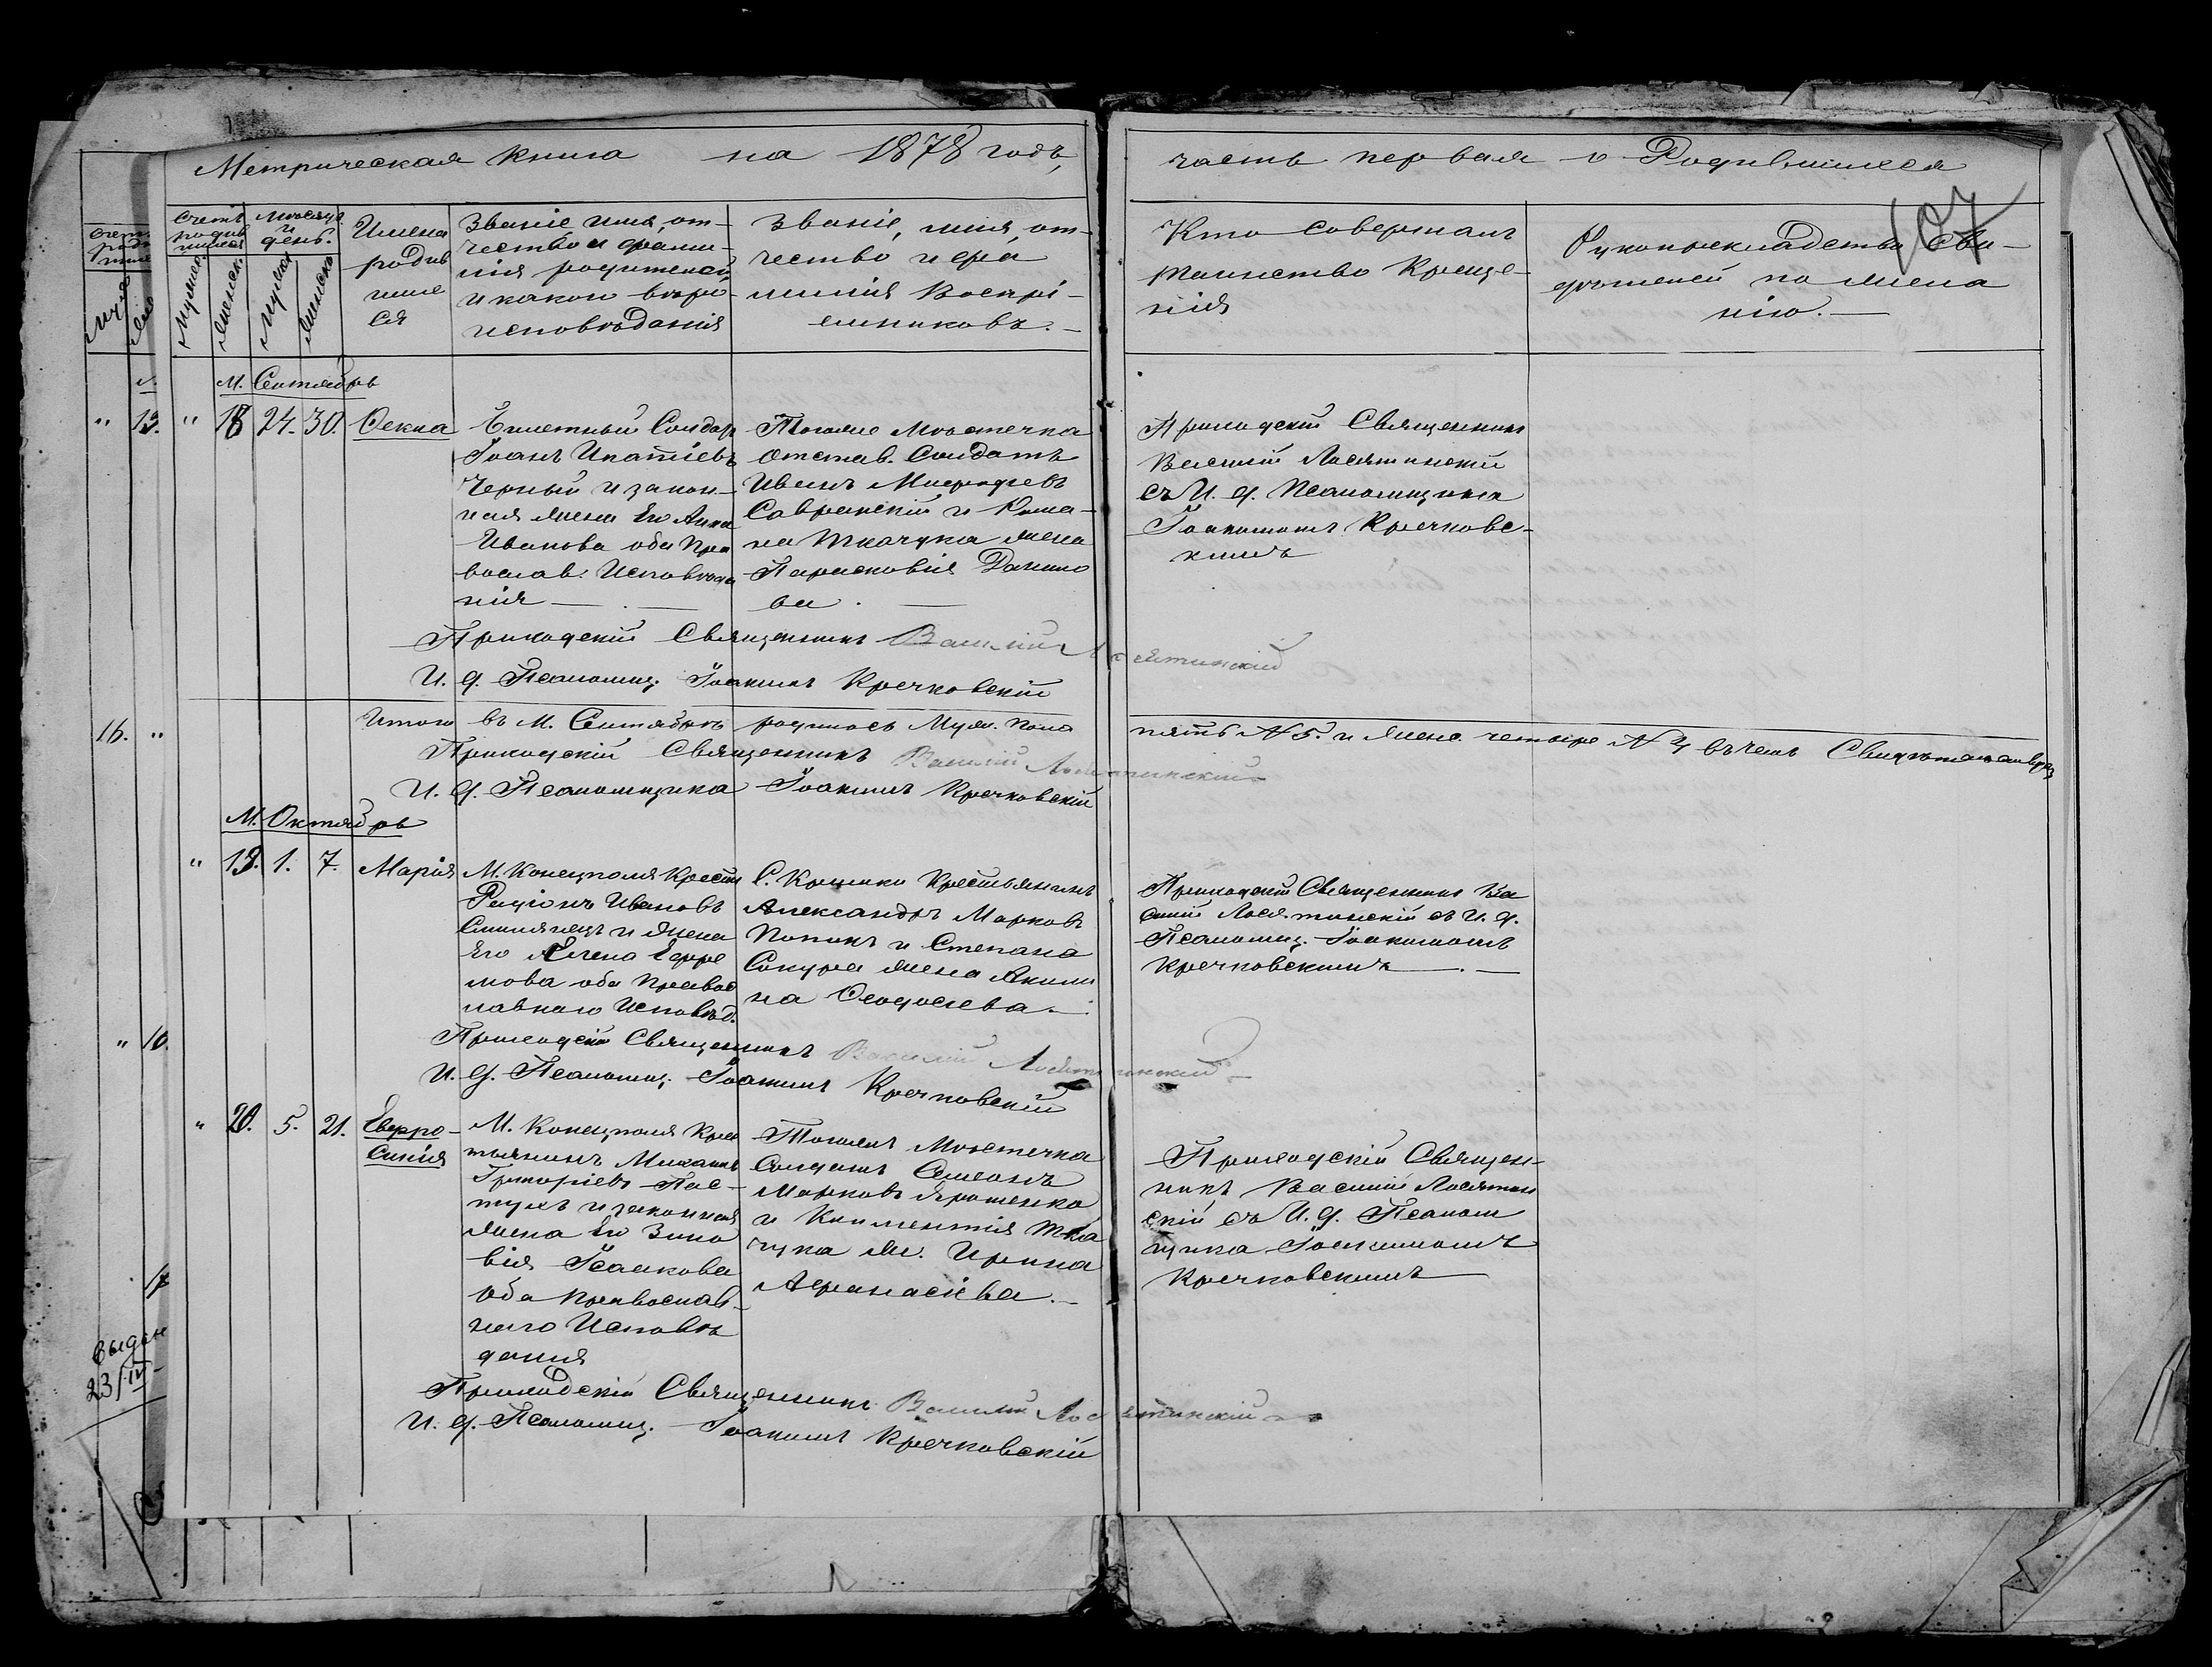 Метрическая Книга на 1878 годъ,
часть первая о Родившихся
107
Счетъ родившихся
Мужеск.
Женск.
Мѣсяцъ и день.
Мужеск
Женско
Имена
родив
шие
ся
Званіе имя, от-
чество и фами-
лія родителей
и какого вѣро-
исповѣданія
Званіе, имя, от-
чество и фа
милія Воспрі-
емниковъ.
Кто Совершалъ
таинство Креще-
нія
Рукоприкладство Сви-
дѣтелей по жела
нію.
М. Сентябрь
" 13.
" 18 24. 30. Фекла
Билетный Солдат
Іоанъ Ипатіевъ
Черный и закон-
ная жена Его Анна
Иванова оба Пра
вослав. Исповѣда
нія
Тогоже Мѣстечка
Отстав. Солдатъ
Иванъ Мифодіевъ
Савранскій и Рома-
на Ткачука жена
Парасковія Данило
ва.
Приходскій Священникъ
Василій Лосятинскій
съ И. д. Псаломщика
Іоакимомъ Кречковс-
кимъ
Приходскій Священникъ Василій Лосятинскій
И. д. Псаломщ. Іоакимъ Кречковскій
16. "
Итого въ М. Сентябрѣ родилось Муж. пола
пять N 5. и Женс. четыре N 4 въ чемъ
Приходскій Священникъ Василій Лосятинскій
И. д. Псаломщика Іоакимъ Кречковскій
М. Октябрь
" 19. 1. 7. Марія
М. Конецполя Крестян
Родіонъ Ивановъ
и Жена
Его Елена Ефре
мова оба Правос
лавнаго Исповѣд.
С. Кринки Крестьянинъ
Александръ Марковъ
Попикъ и Степана
Сокура жена Акили
на Феодосіева.
Приходскій Священникъ Ва
силій Лосятинскій съ И. д.
Псаломщ. Іоакимомъ
Кречковскимъ
" 10.
Приходскій Священникъ Василій Лосятинскій
И. д. Псаломщ. Іоакимъ Кречковскій
" 20. 5. 21. Евфро-
синія
М. Конецполя Крес
тьянинъ Михаилъ
Григоріевъ Пас-
тухъ и законная
жена Его Зино
вія Іоакова
Оба Православ-
наго Исповѣ
данія
Тогожъ Мѣстечка
Солдатъ Симеонъ
Марковъ Ярошенко
и Климентія Тка
чука Ж. Ирина
Афанасіева.
Приходскій Священ-
никъ Василій Лосятин
скій съ И. д. Псалом
щика Іоакимомъ
Кречковскимъ
17
Выдан
23/IV
Приходскій Священникъ Василій Лосятинскій
И. д. Псаломщ. Іоакимъ Кречковскій